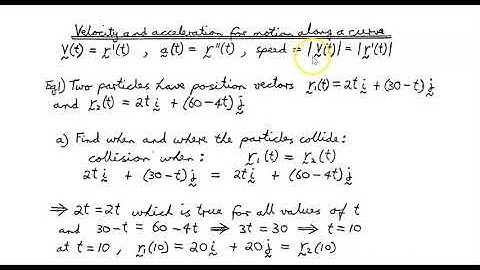 Velocity and acceleration for motion along a curve
v(t) = r'(t) , a(t) = r''(t) , speed = |v(t)| = |r'(t)|
Eg1) Two particles have position vectors r₁(t) = 2t i + (30-t) j
and r₂(t) = 2t i + (60-4t) j
a) Find when and where the particles collide:
collision when: r₁(t) = r₂(t)
2t i + (30-t) j = 2t i + (60-4t) j
⇒ 2t = 2t which is true for all values of t
and 30-t = 60-4t ⇒ 3t = 30 ⇒ t = 10
at t = 10 , r₁(10) = 20 i + 20 j = r₂(10)